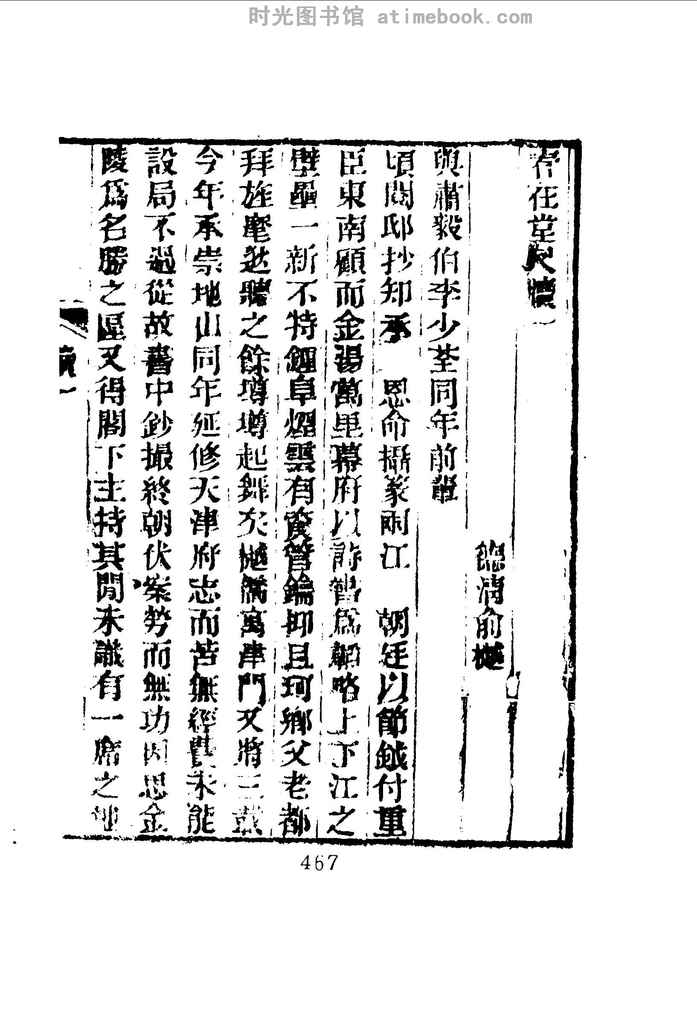 时光图书馆 atimebook.com
春在堂尺牘一
德淸俞樾
與肅毅伯李少荃同年前輩
頃閱邸抄知承 恩命攝篆兩江 朝廷以節鉞付重
臣東南顧而金湯萬里幕府以詩書爲韜略上下江之
壁壘一新不特鍾阜煙雲有資管鑰抑且珂鄉父老都
拜旌麾逖聽之餘墫墫起舞矣樾僑寓津門又將三載
今年承崇地山同年延修天津府志而苦無經費未能
設局不過從故書中鈔撮終朝伏案勞而無功因思金
陵爲名勝之區又得閣下主持其間未識有一席之地
一
467